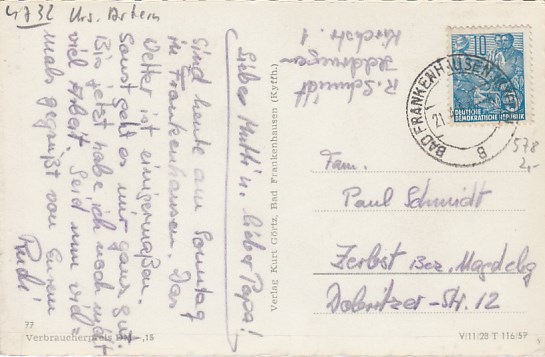 4732 Krs. Artern
Liebe Mutti u. lieber Papa!
Sind heute am Sonntag
in Frankenhausen. Das
Wetter ist einigermaßen.
Sonst geht es mir ganz gut.
Bis jetzt habe ich noch nicht
viel Arbeit. Seid nun viel-
mals gegrüßt von Eurem
Rudi
77
Verbraucherpreis DM -,15
Verlag Kurt Görtz, Bad Frankenhausen (Kyffh.)
R. Schmidt
Heldrungen
Kirchstr. 1
10
DEUTSCHE
DEMOKRATISCHE REPUBLIK
BAD FRANKENHAUSEN
21.
8
578
2,-
Fam.
Paul Schmidt
Zerbst Bez. Magdebg
Dobritzer-Str. 12
V/11/28 T 116/57